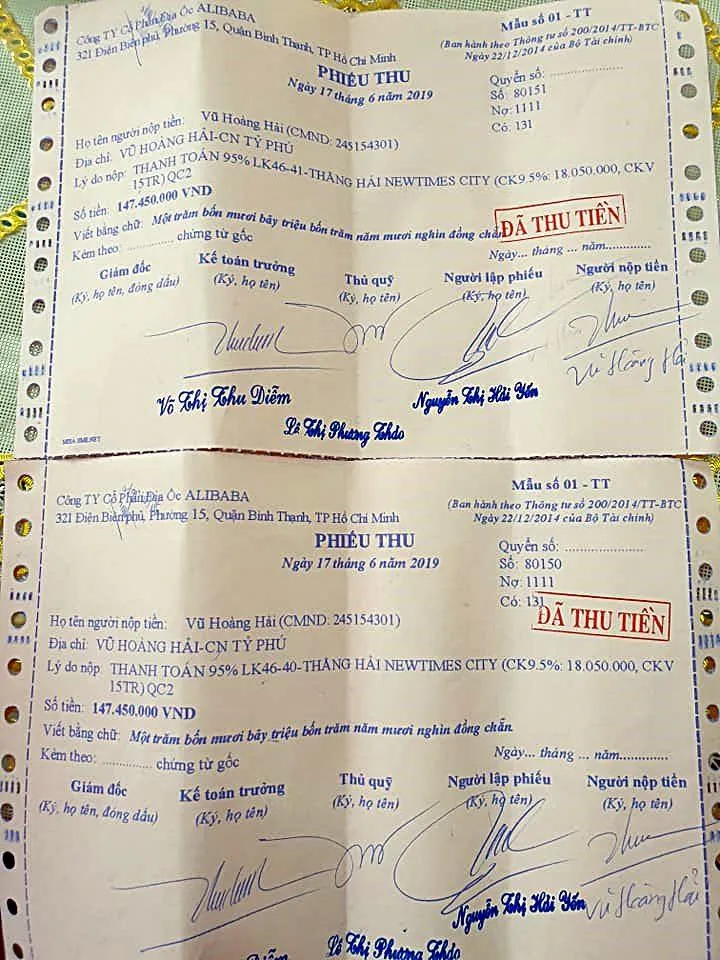 Công TY Cổ Phần Địa Ốc ALIBABA
321 Điện Biên phủ, Phường 15, Quận Bình Thạnh, TP Hồ Chí Minh
Mẫu số 01 - TT
(Ban hành theo Thông tư số 200/2014/TT-BTC
Ngày 22/12/2014 của Bộ Tài chính)
PHIẾU THU
Ngày 17 tháng 6 năm 2019
Quyển số: .....................
Số: 80151
Nợ: 1111
Có: 131
Họ tên người nộp tiền: Vũ Hoàng Hải (CMND: 245154301)
Địa chỉ: VŨ HOÀNG HẢI-CN TỶ PHÚ
Lý do nộp: THANH TOÁN 95% LK46-41-THĂNG HẢI NEWTIMES CITY (CK9.5%: 18.050.000, CKV
15TR) QC2
Số tiền: 147.450.000 VND
Viết bằng chữ: Một trăm bốn mươi bảy triệu bốn trăm năm mươi nghìn đồng chẵn
ĐÃ THU TIỀN
Kèm theo: .............. chứng từ gốc
Ngày... tháng ... năm.............
Giám đốc Kế toán trưởng Thủ quỹ Người lập phiếu Người nộp tiền
(Ký, họ tên, đóng dấu) (Ký, họ tên) (Ký, họ tên) (Ký, họ tên) (Ký, họ tên)
Vũ Hoàng Hải
Võ Thị Thu Diễm Nguyễn Thị Hải Yến
Lê Thị Phương Thảo
MISA SME.NET
Công TY Cổ Phần Địa Ốc ALIBABA
321 Điện Biên phủ, Phường 15, Quận Bình Thạnh, TP Hồ Chí Minh
Mẫu số 01 - TT
(Ban hành theo Thông tư số 200/2014/TT-BTC
Ngày 22/12/2014 của Bộ Tài chính)
PHIẾU THU
Ngày 17 tháng 6 năm 2019
Quyển số: .....................
Số: 80150
Nợ: 1111
Có: 131
ĐÃ THU TIỀN
Họ tên người nộp tiền: Vũ Hoàng Hải (CMND: 245154301)
Địa chỉ: VŨ HOÀNG HẢI-CN TỶ PHÚ
Lý do nộp: THANH TOÁN 95% LK46-40-THĂNG HẢI NEWTIMES CITY (CK9.5%: 18.050.000, CKV
15TR) QC2
Số tiền: 147.450.000 VND
Viết bằng chữ: Một trăm bốn mươi bảy triệu bốn trăm năm mươi nghìn đồng chẵn
Kèm theo: .............. chứng từ gốc
Ngày... tháng ... năm.............
Giám đốc Kế toán trưởng Thủ quỹ Người lập phiếu Người nộp tiền
(Ký, họ tên, đóng dấu) (Ký, họ tên) (Ký, họ tên) (Ký, họ tên) (Ký, họ tên)
Nguyễn Thị Hải Yến Vũ Hoàng Hải
Diễm Lê Thị Phương Thảo